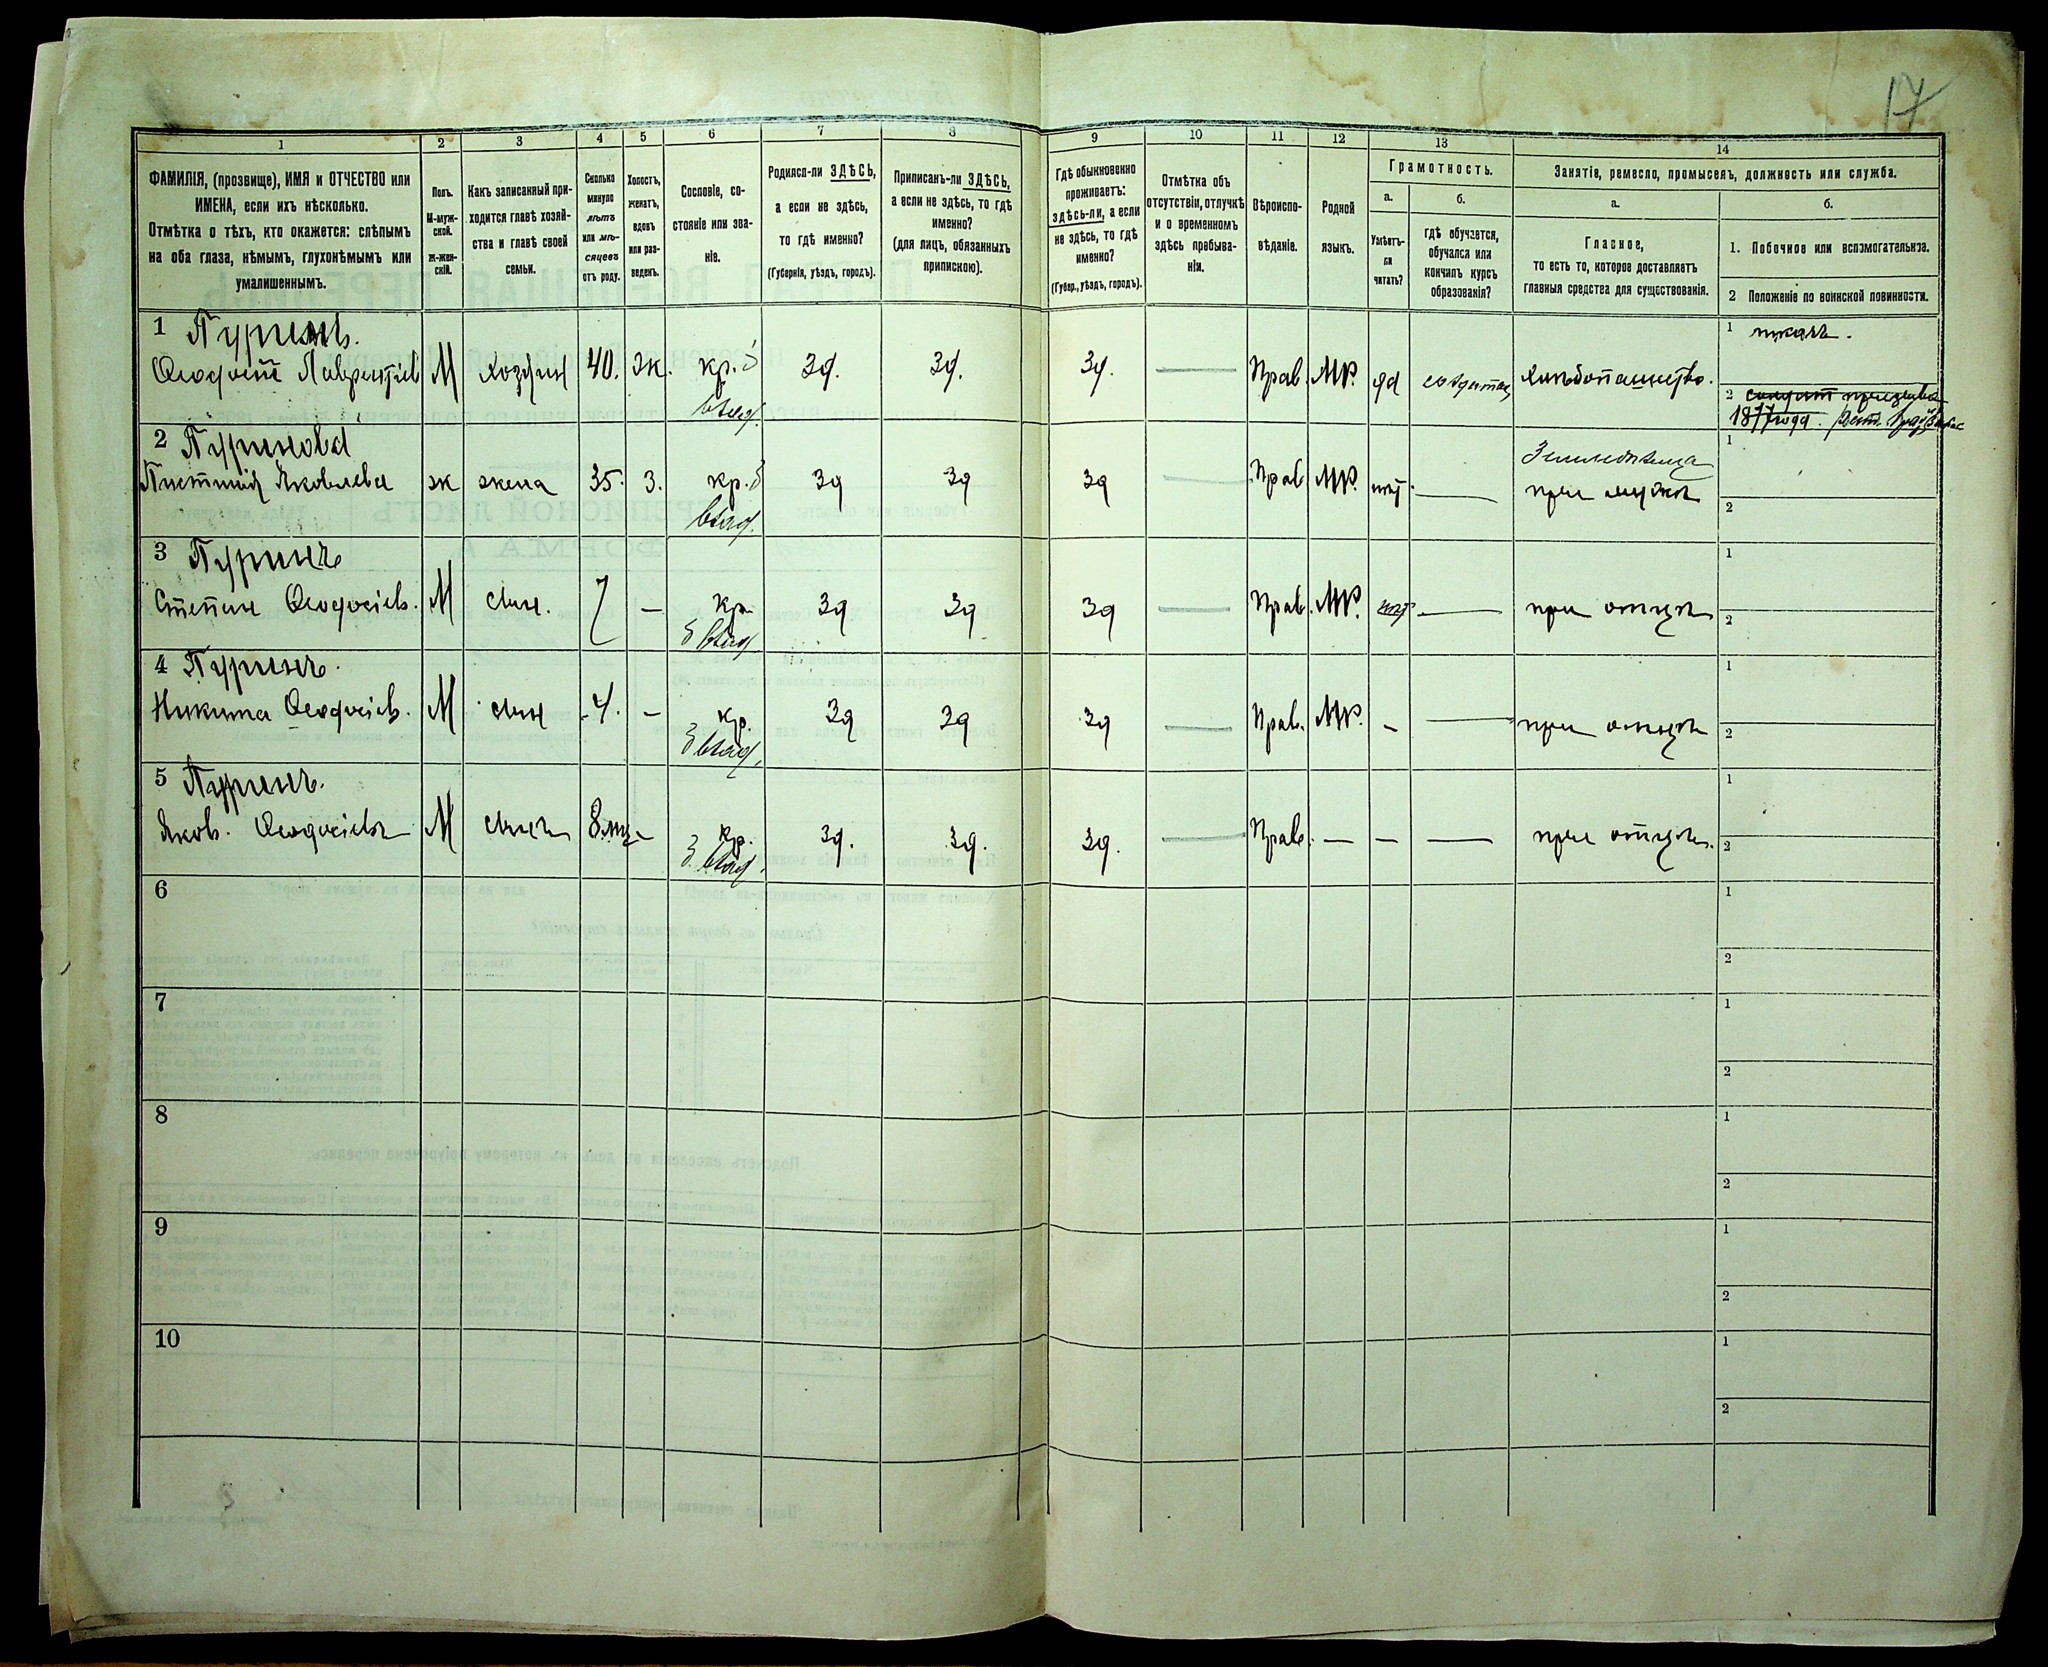 17
1
ФАМИЛІЯ, (прозвище), ИМЯ и ОТЧЕСТВО или
ИМЕНА, если ихъ нѣсколько.
Отмѣтка о тѣхъ, кто окажется: слѣпымъ
на оба глаза, нѣмымъ, глухонѣмымъ или
умалишеннымъ.
2
Полъ.
М-муж-
ской.
Ж-жен-
скій.
3
Какъ записанный при-
ходится главѣ хозяй-
ства и главѣ своей
семьи.
4
Сколько
минуло
лѣтъ
или мѣ-
сяцевъ
отъ роду.
5
Холостъ,
женатъ,
вдовъ
или раз-
веденъ.
6
Сословіе, со-
стояніе или зва-
ніе.
7
Родился-ли ЗДѢСЬ,
а если не здѣсь,
то гдѣ именно?
(Губернія, уѣздъ, городъ).
8
Приписанъ-ли ЗДѢСЬ,
а если не здѣсь, то гдѣ
именно?
(для лицъ, обязанныхъ
припискою).
9
Гдѣ обыкновенно
проживаетъ:
здѣсь-ли, а если
не здѣсь, то гдѣ
именно?
(Губер., уѣздъ, городъ).
10
Отмѣтка объ
отсутствіи, отлучкѣ
и о временномъ
здѣсь пребыва-
ніи.
11
Вѣроиспо-
вѣданіе.
12
Родной
языкъ.
13
Грамотность.
а.
Умѣетъ-
ли
читать?
б.
гдѣ обучается,
обучался или
кончилъ курсъ
образованія?
14
Занятіе, ремесло, промыселъ, должность или служба.
а.
Главное,
то есть то, которое доставляетъ
главныя средства для существованія.
б.
1. Побочное или вспомогательное.
2 Положеніе по воинской повинности.
1 Пуринъ.
Ѳеодосій Лаврентіев М Хозяин 40. ж. кр. б
влад.
зд. зд. зд. Прав. МР. да солдатах Хлѣбопашество.
1
2 солдат призыва
1877 года.
2 Пуринова
Яковлева ж жена 35. з. кр. б
влад.
зд зд зд Прав МР. нѣт. Земледѣлица
при мужѣ
1
2
3 Пуринъ
Степан Ѳеодосіев. М сын. 7 – кр.
б влад
зд зд зд Прав. МР. нѣт при отцѣ
1
2
4 Пуринъ.
Никита Ѳеодосіев. М сын 4. – кр.
б влад.
зд зд зд Прав. МР. – при отцѣ
1
2
5 Пуринъ.
Яков. Ѳеодосіевъ М сынъ 8 мц – кр.
б влад.
зд. зд. зд. Прав. – – при отцѣ.
1
2
6
1
2
7
1
2
8
1
2
9
1
2
10
1
2